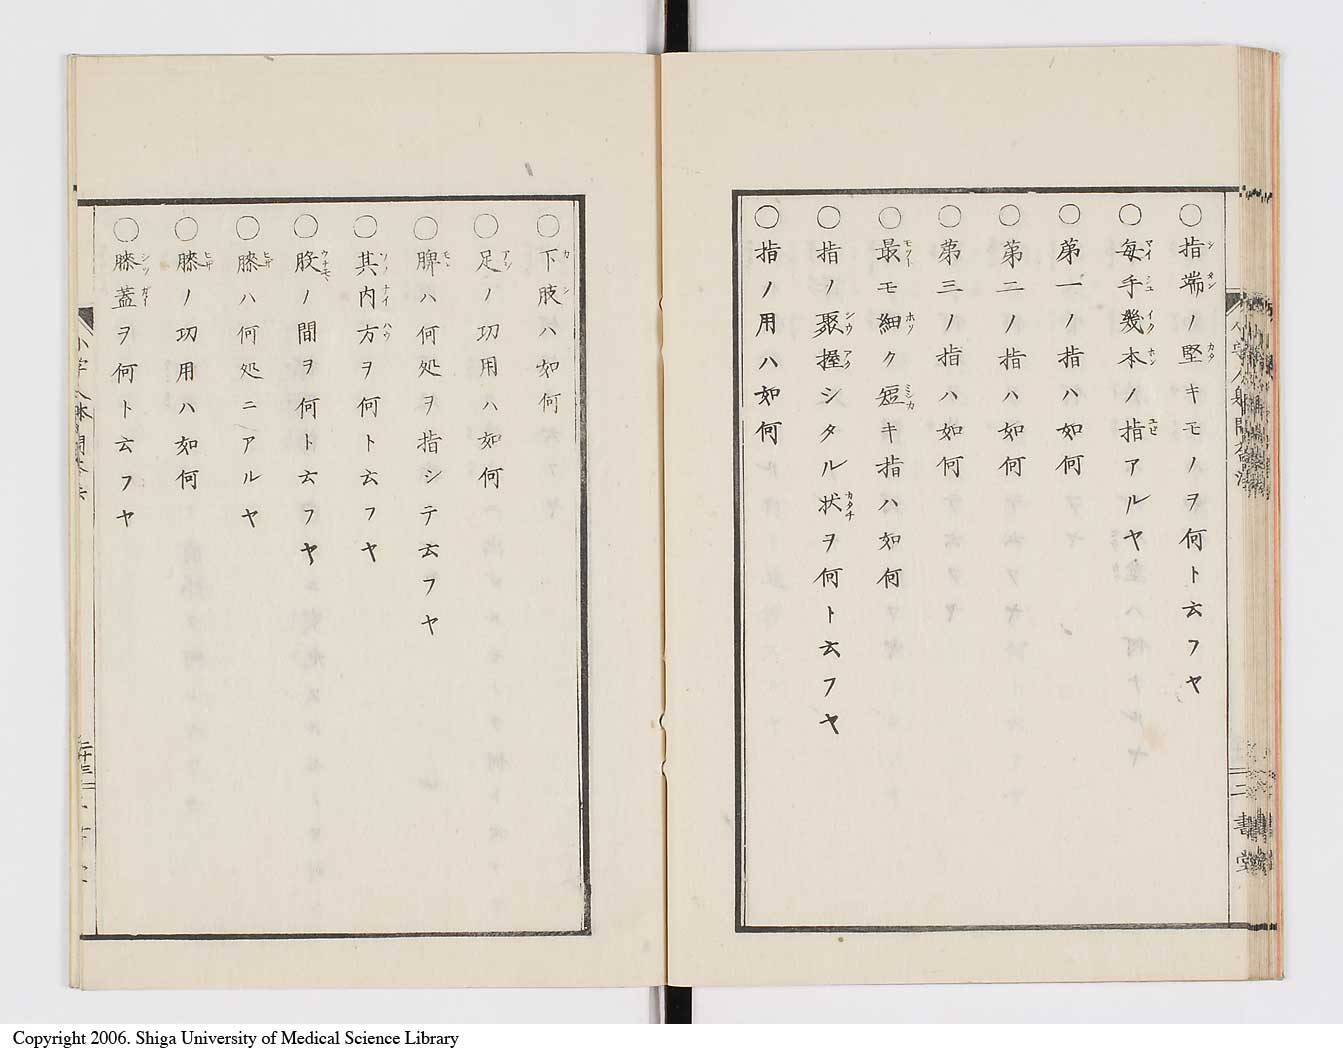 ○指端ノ堅キモノヲ何ト云フヤ
○每手幾本ノ指アルヤ
○第一ノ指ハ如何
○第二ノ指ハ如何
○第三ノ指ハ如何
○最モ細ク短キ指ハ如何
○指ノ聚握シタル状ヲ何ト云フヤ
○指ノ用ハ如何
○下肢ハ如何
○足ノ功用ハ如何
○脾ハ何処ヲ指シテ云フヤ
○其内方ヲ何ト云フヤ
○股ノ間ヲ何ト云フヤ
○膝ハ何処ニアルヤ
○膝ノ功用ハ如何
○膝蓋ヲ何ト云フヤ
二十三
書堂
Copyright 2006. Shiga University of Medical Science Library